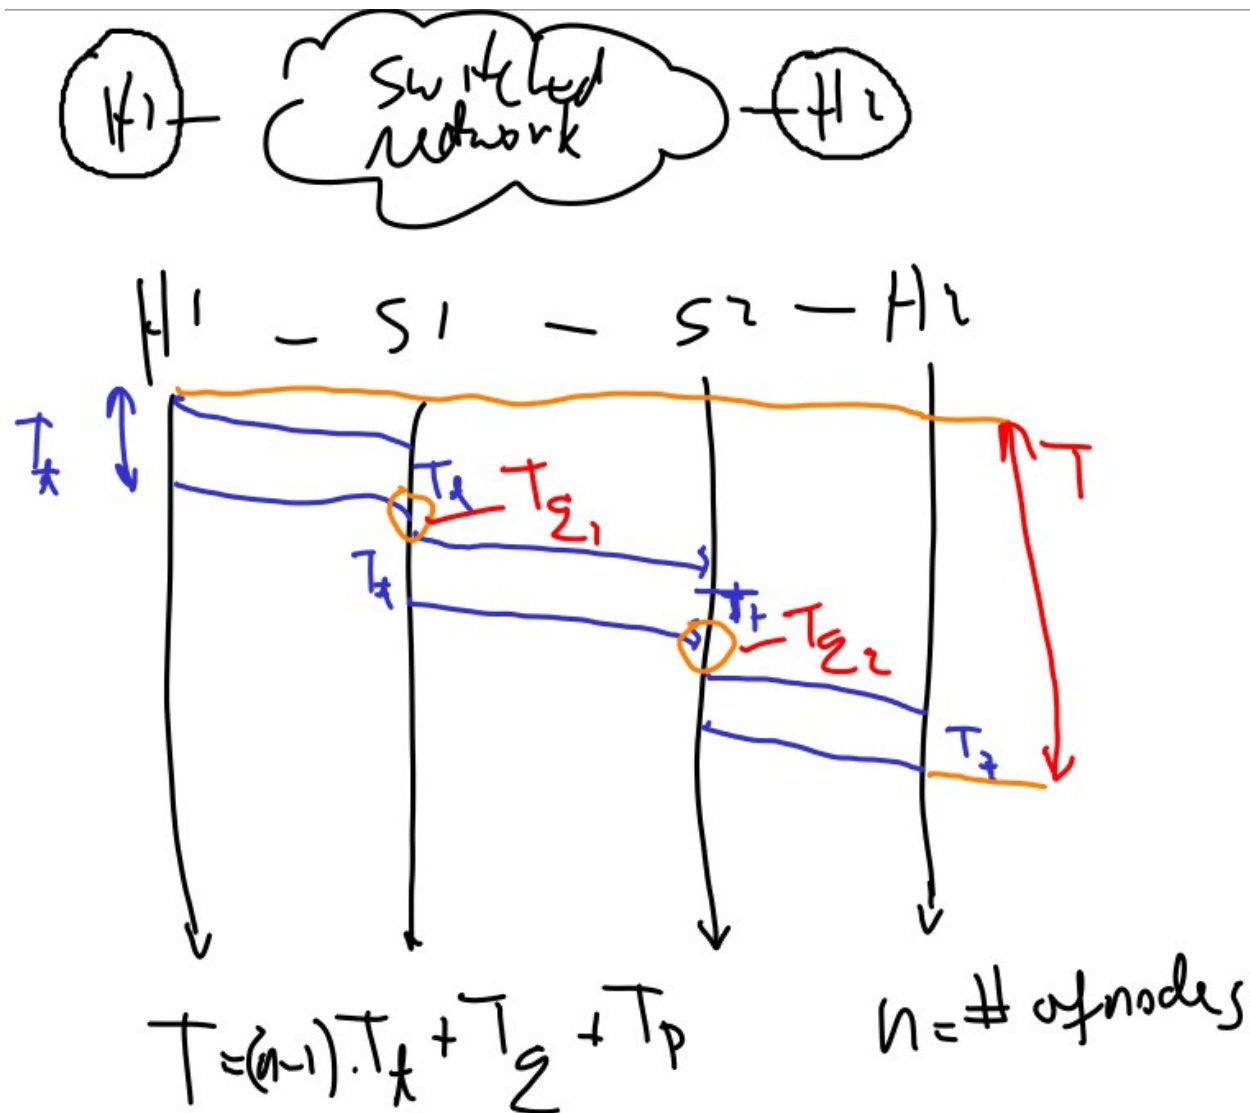 H1 switched H2
network
H1 - S1 - S2 - H2
T
Tt
Tt Tq1
Tt
Tt Tq2
Tt
T=(n-1).Tt+Tq+Tp
n=# of nodes